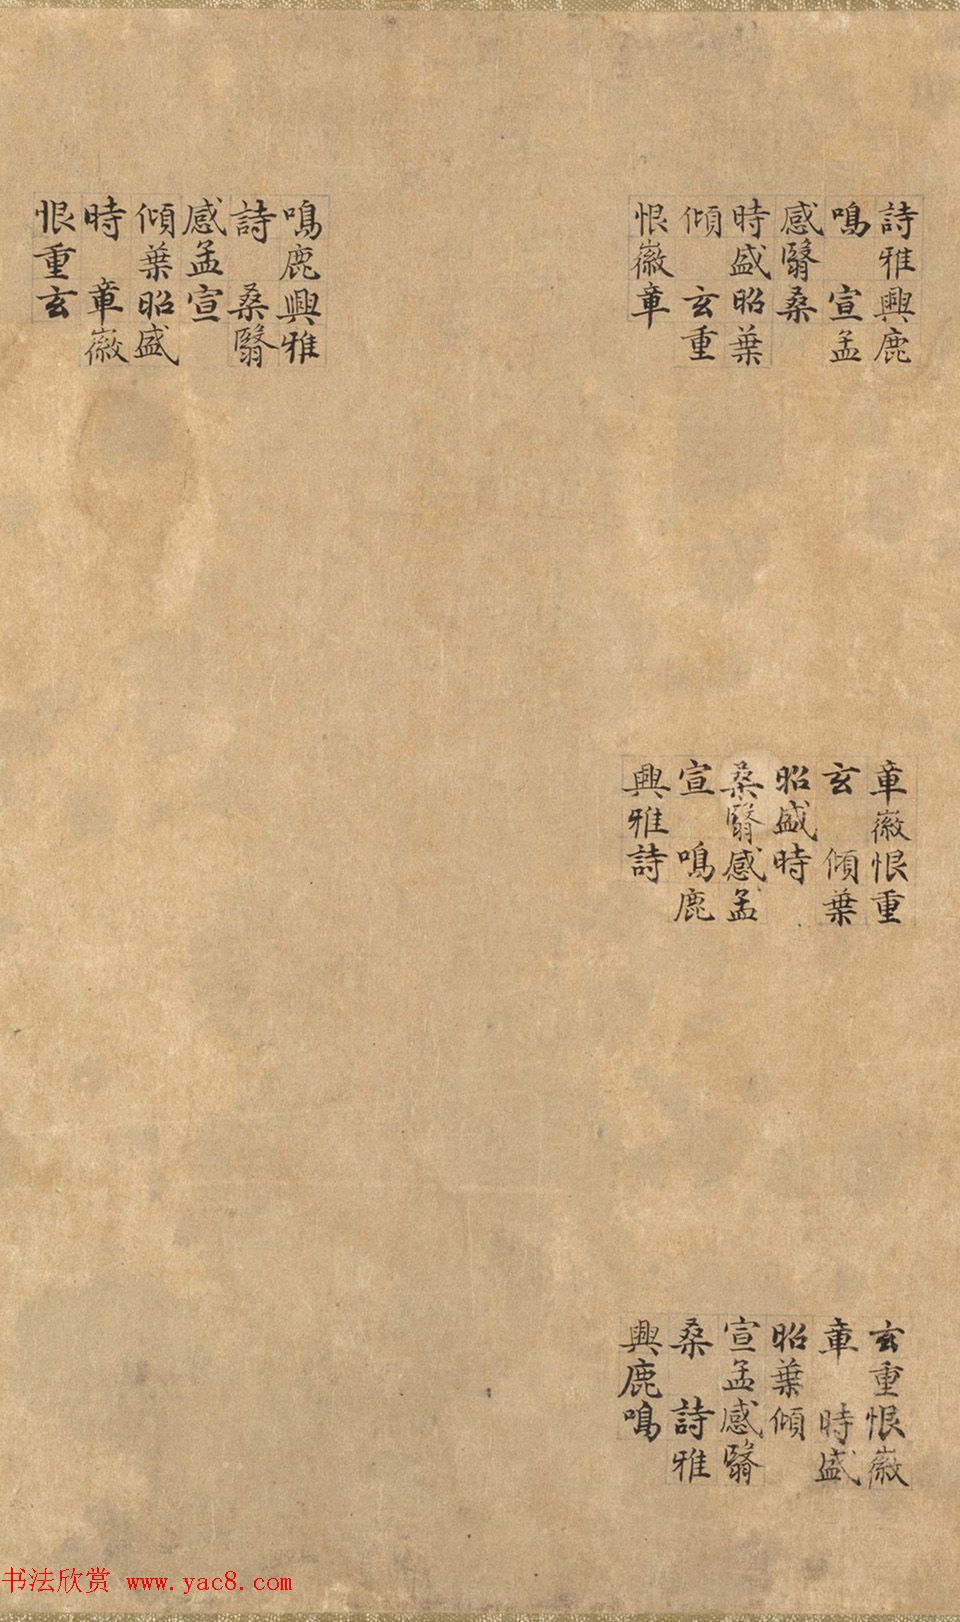 詩雅興鹿
鳴 宣孟
感翳桑
時盛昭葉
傾 玄重
恨徽章
鳴鹿興雅
詩 桑翳
感孟宣
傾葉昭盛
時 章徽
恨重玄
章徽恨重
玄 傾葉
昭盛時
桑翳感孟
宣 鳴鹿
興雅詩
玄重恨徽
章 時盛
昭葉傾
宣孟感翳
桑 詩雅
興鹿鳴
书法欣赏 www.yac8.com